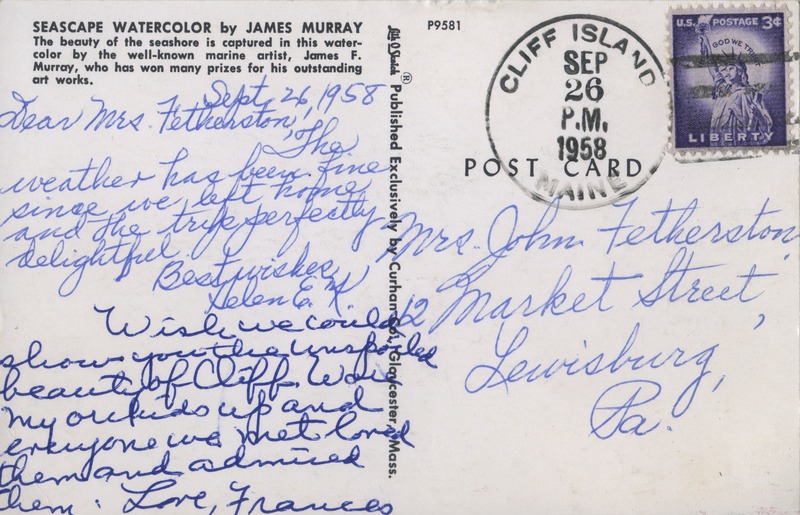 SEASCAPE WATERCOLOR by JAMES MURRAY
The beauty of the seashore is captured in this water-
color by the well-known marine artist, James F.
Murray, who has won many prizes for his outstanding
art works.
Sept. 26, 1958
Dear Mrs. Fetherston,
The
weather has been fine
since we left home
and the trip perfectly
delightful.
Best wishes,
Helen E. K.
Wish we could
show you the unspoiled
beauty of Cliff. Wore
my orchids up and
everyone we met loved
them and admired
them. Love, Frances
® Published Exclusively by Curhan Co., Gloucester, Mass.
P9581
CLIFF ISLAND
SEP
26
P.M.
1958
MAINE
U.S. POSTAGE 3¢
IN GOD WE TRUST
LIBERTY
POST CARD
Mrs. John Fetherston,
12 Market Street,
Lewisburg,
Pa.